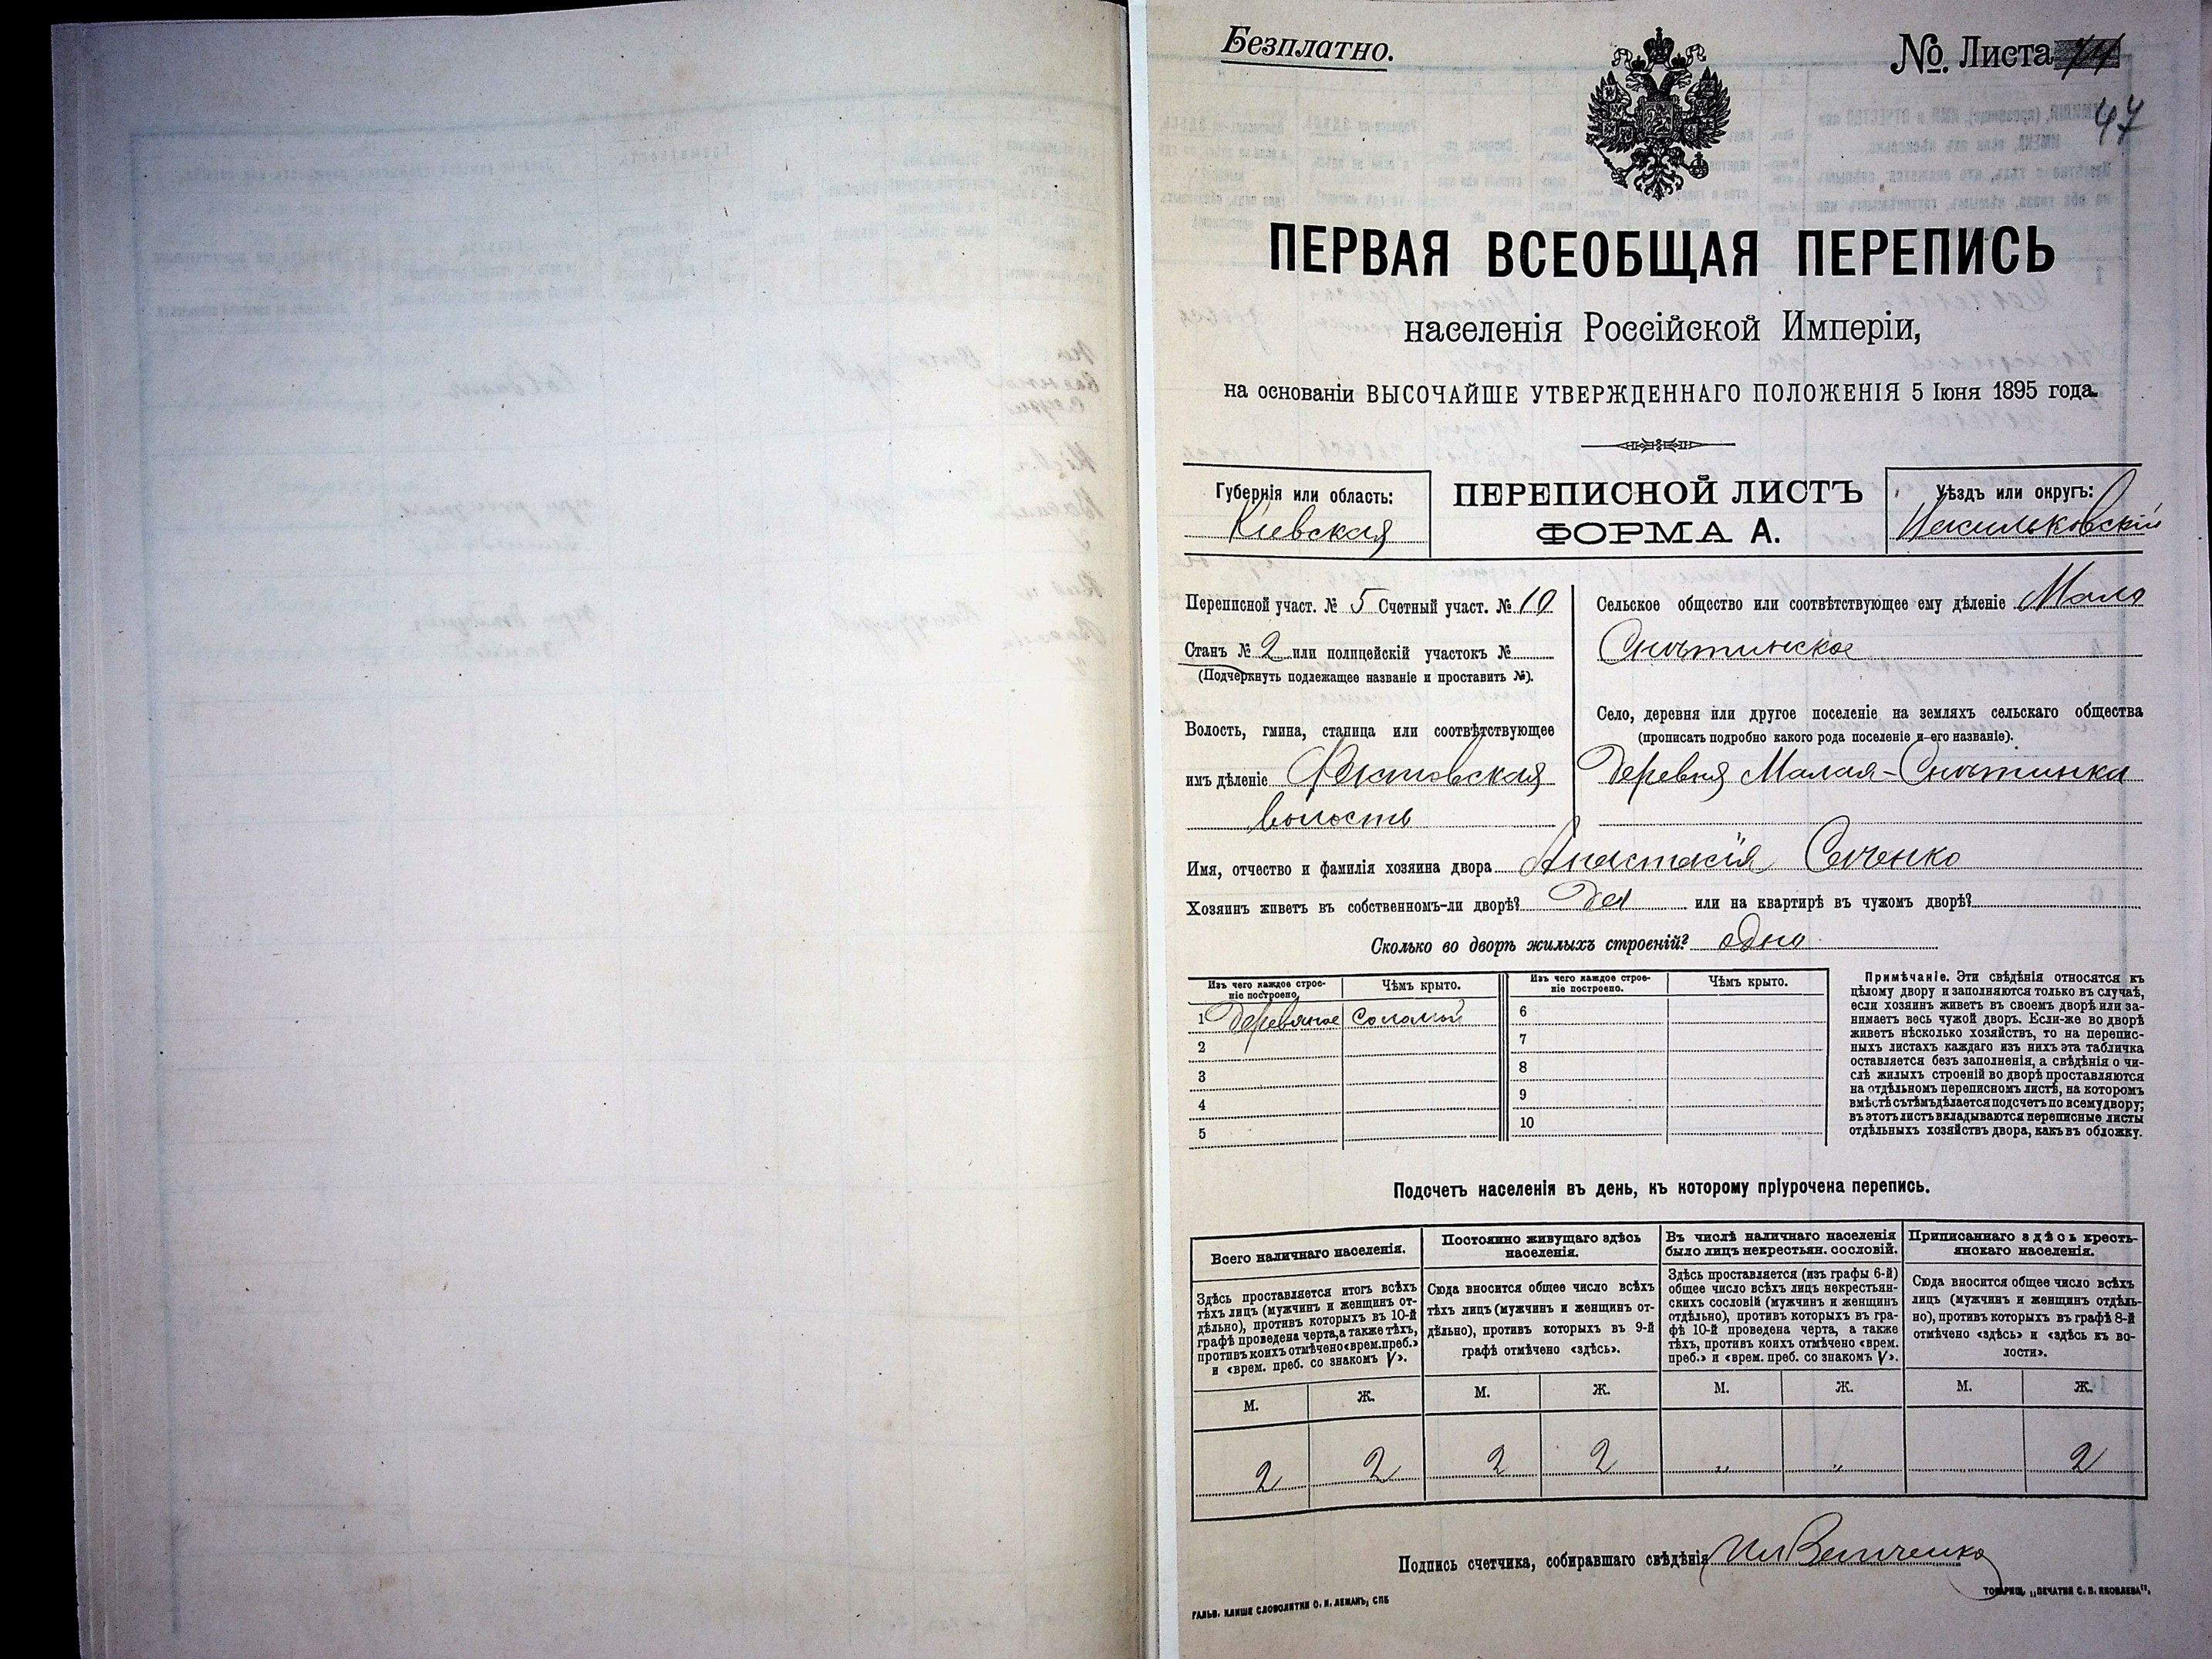 Безплатно.
№ Листа
47
ПЕРВАЯ ВСЕОБЩАЯ ПЕРЕПИСЬ
населенія Россійской Имперіи,
на основаніи ВЫСОЧАЙШЕ УТВЕРЖДЕННАГО ПОЛОЖЕНІЯ 5 Іюня 1895 года.
Губернія или область:
Кіевская
ПЕРЕПИСНОЙ ЛИСТЪ
ФОРМА А.
Уѣздъ или округъ:
Васильковскій
Переписной участ. № 5 Счетный участ. № 10
Станъ № 2 или полицейскій участокъ №
(Подчеркнуть подлежащее названіе и проставить №).
Волость, гмина, станица или соотвѣтствующее
имъ дѣленіе
волость
Сельское общество или соотвѣтствующее ему дѣленіе Мало
Снѣтинское
Село, деревня или другое поселеніе на земляхъ сельскаго общества
(прописать подробно какого рода поселеніе и его названіе).
Деревня Малая-Снѣтинка
Имя, отчество и фамилія хозяина двора Анастасія
Хозяинъ живетъ въ собственномъ-ли дворѣ? Да или на квартирѣ въ чужомъ дворѣ?
Сколько во дворѣ жилыхъ строеній? одно
Изъ чего каждое строе-
ніе построено.
Чѣмъ крыто.
Изъ чего каждое строе-
ніе построено.
Чѣмъ крыто.
1 Деревяное Соломой
2
3
4
5
6
7
8
9
10
Примѣчаніе. Эти свѣдѣнія относятся къ
цѣлому двору и заполняются только въ случаѣ,
если хозяинъ живетъ въ своемъ дворѣ или за-
нимаетъ весь чужой дворъ. Если-же во дворѣ
живетъ нѣсколько хозяйствъ, то на перепис-
ныхъ листахъ каждаго изъ нихъ эта табличка
оставляется безъ заполненія, а свѣдѣнія о чи-
слѣ жилыхъ строеній во дворѣ проставляются
на отдѣльномъ переписномъ листѣ, на которомъ
вмѣстѣ съ тѣмъ дѣлается подсчетъ по всему двору;
въ этотъ листъ вкладываются переписные листы
отдѣльныхъ хозяйствъ двора, какъ въ обложку.
Подсчетъ населенія въ день, къ которому пріурочена перепись.
Всего наличнаго населенія.
Здѣсь проставляется итогъ всѣхъ
тѣхъ лицъ (мужчинъ и женщинъ от-
дѣльно), противъ которыхъ въ 10-й
графѣ проведена черта, а также тѣхъ,
противъ коихъ отмѣчено «врем. преб.»
и «врем. преб. со знакомъ V».
Постоянно живущаго здѣсь
населенія.
Сюда вносится общее число всѣхъ
тѣхъ лицъ (мужчинъ и женщинъ от-
дѣльно), противъ которыхъ въ 9-й
графѣ отмѣчено «здѣсь».
Въ числѣ наличнаго населенія
было лицъ некрестьян. сословій.
Здѣсь проставляется (изъ графы 6-й)
общее число всѣхъ лицъ некрестьян-
скихъ сословій (мужчинъ и женщинъ
отдѣльно), противъ которыхъ въ гра-
фѣ 10-й проведена черта, а также
тѣхъ, противъ коихъ отмѣчено «врем.
преб.» и «врем. преб. со знакомъ V».
Приписаннаго здѣсь кресть-
янскаго населенія.
Сюда вносится общее число всѣхъ
лицъ (мужчинъ и женщинъ отдѣль-
но), противъ которыхъ въ графѣ 8-й
отмѣчено «здѣсь» и «здѣсь къ во-
лости».
М. Ж. М. Ж. М. Ж. М. Ж.
2 2 2 2 „ „ 2
Подпись счетчика, собиравшаго свѣдѣнія
ГАЛЬВ. КЛИШЕ СЛОВОЛИТНИ О. И. ЛЕМАНЪ, СПБ
ТОВАРИЩ. „ПЕЧАТНЯ С. П. ЯКОВЛЕВА".